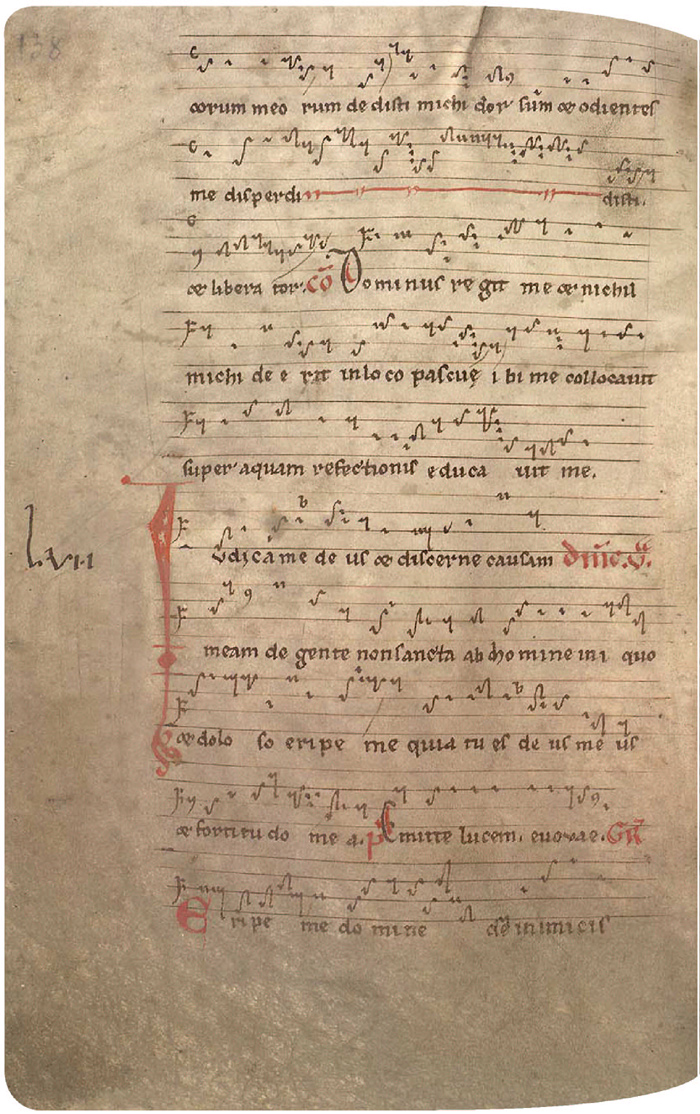 138
eorum meo rum de disti michi dorsum & odientes
me disperdi disti.
& libera tor. cō Dominus re git me & nichil
michi de e rit in lo co pascuę i bi me collocauit
super aquam refectionis e duca uit me.
lvii
Iudica me de us & discerne causam
meam de gente non sancta ab homine ini quo
& dolo so eripe me quia tu es de us me us
& fortitu do me a. p̄ Emitte lucem. euouae. GR̄
Eripe me do mine de inimicis